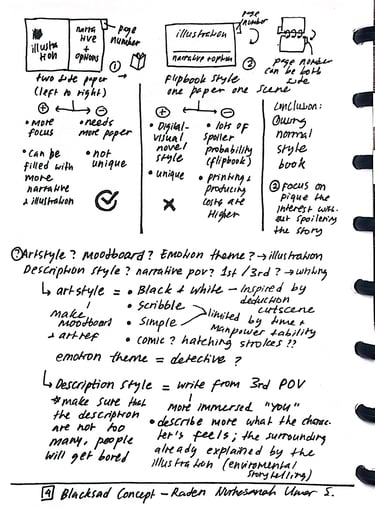 illustration
narrative + options
page number
①
two side paper
(left to right)
+
-
• more focus
• can be filled with more narrative & illustration
• needs more paper
• not unique
illustration
narrative + option
page number
③
Flipbook style
one paper one scene
+
-
• Digital-visual novel style
• unique
• lots of spoiler probability (flipbook)
• printing & producing costs are Higher
page number can be both side
Conclusion:
normal style book
② Focus on pique the interest without spoilering the story
? Artstyle? Moodboard? Emotion theme? → illustration
Description style? narrative pov? 1st/3rd? → writing
↳ artstyle = • Black & white - Inspired by deduction cutscene
make moodboard & art ref
• Scribble
• Simple
limited by time & manpower + ability
• comic? hatching strokes??
emotion theme = detective?
↳ Description style = write from 3rd POV
* make sure that the description are not too many, people will get bored
more immersed "you"
• describe more what the character's feels; the surrounding already explained by the illustration (enviromental storytelling)
4 Blacksad Concept - Raden Umar S.